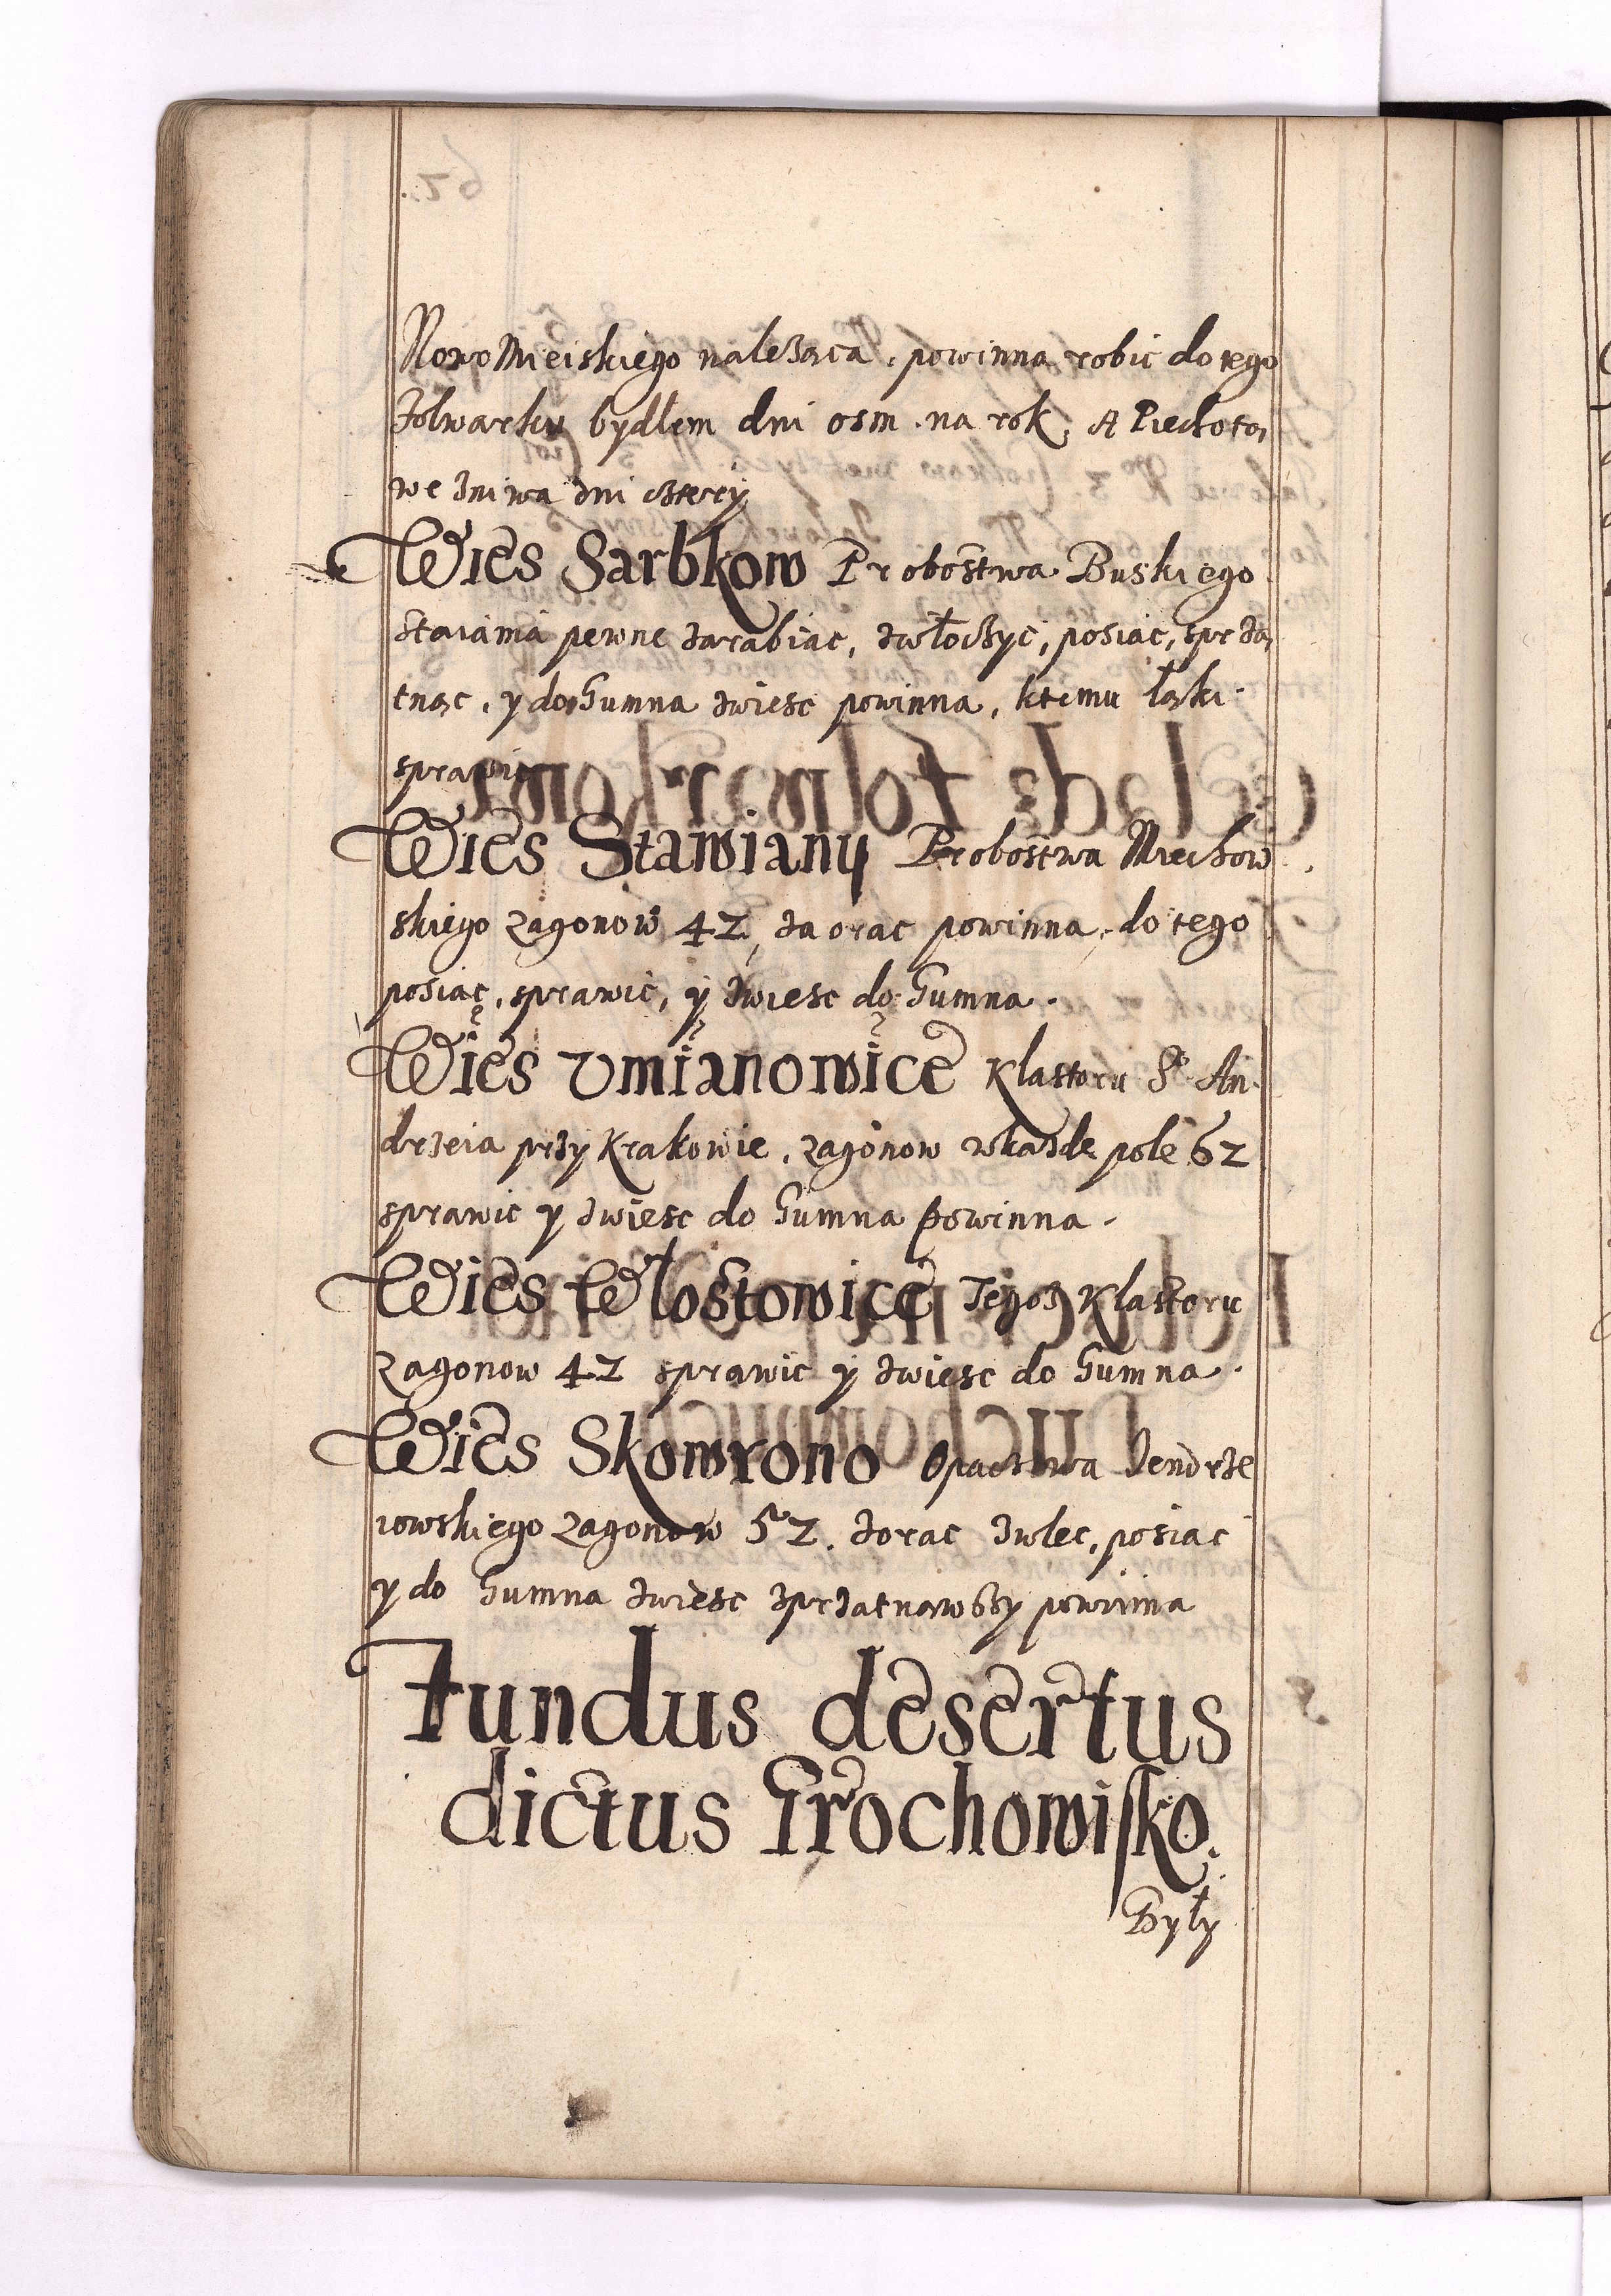 NowoMieiskiego należąca, powinna robic do tego
folwarku bydłem dni osm na rok, A Piechotą
we żniwa dni cztery
Wies Sarbkow Probostwa Buskiego
staiama pewne zarabiac, zwłoczyc, posiac, sprzą
tnąc, y do Gumna zwiesc powinna, ktemu łąki
sprawic
Wies Stawiany Probostwa Miechow
skiego zagonow 42, za orac powinna, do tego
posiac, sprawic, y zwiesc do Gumna.
Wies Vmianowice Klastoru S. An
drzeia przy Krakowie, zagonow wkażde pole 62
sprawic y zwiesc do Gumna powinna.
Wies Włostowice Tegoż Klastoru
zagonow 42 sprawic y zwiesc do Gumna.
Wies Skowrono Opactwa Jendrze
iowskiego zagonow 52. zorac zwlec, posiac
y do Gumna zwiesc zprzatnąwszy powinna
Fundus desertus
dictus Grochowisko.
Były